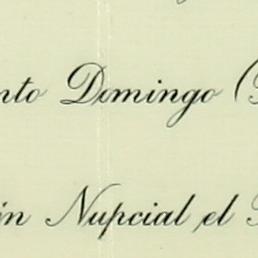 nto Domingo (
ín Nupcial el